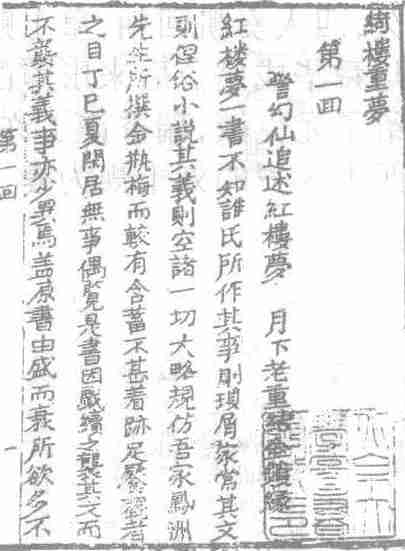 綺樓重夢
第一回
警幻仙追述紅樓夢 月下老重結金鎖緣
紅樓夢一書不知誰氏所作其事則瑣屑家常其文
則俚俗小說其義則空諸一切大略規仿吾家鳳洲
先生所撰金瓶梅而較有含蓄不甚着跡足饜讀者
之目丁巳夏閒居無事偶覽是書因戲續之襲其文而
不襲其義事亦少異焉蓋原書由盛而衰所欲多不
第一回
一